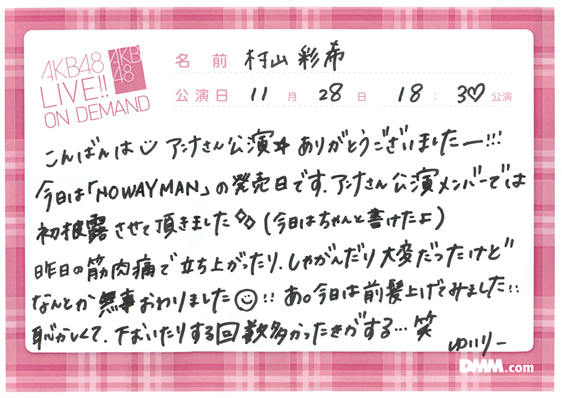 AKB48
LIVE!!
ON DEMAND
AKB
48
名 前 村山 彩希
公演日 11 月 28 日 18 : 30 公演
こんばんは アンナさん公演 ありがとうございましたー!!!
今日は「NO WAY MAN」の発売日です。アンナさん公演メンバーでは
初披露させて頂きました (今日はちゃんと書けたよ)
昨日の筋肉痛で立ち上がったり、しゃがんだり大変だったけど
なんとか無事おわりました !! あ。今日は前髪上げてみました!!
恥ずかしくて、下むいたりする回数多かったきがする…笑
ゆいりー
DMM.com